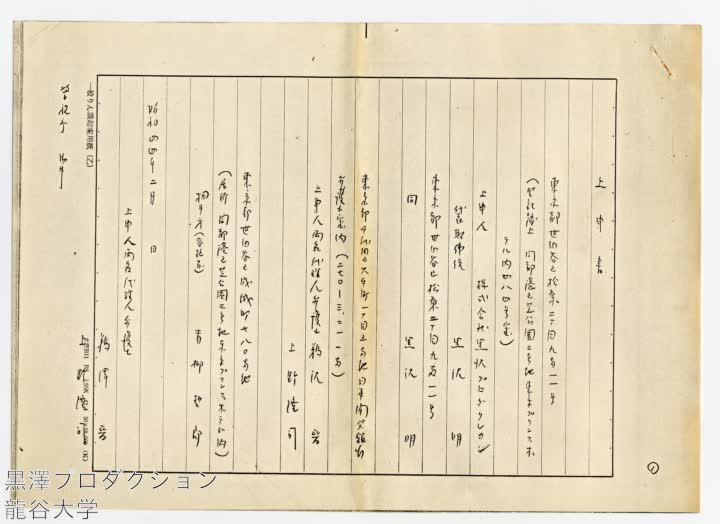 上申書
東京都世田谷区松原二丁目九番一一号
(登記簿上 同都港区芝公園三号地東京プリンスホ
テル内四八四号室)
上申人 株式会社黒沢プロダクション
代表取締役 黒沢 明
東京都世田谷区松原二丁目九番一一号
同 黒沢 明
東京都千代田区大手町一丁目五番地日本開発銀行
弁護士室内 (二七〇-三二一一番)
上申人両名代理人弁護士 鵜沢 晋
上野隆司
東京都世田谷区成城町七八〇番地
(居所 同都港区芝公園三号地東京プリンスホテル内)
相手方(会社) 青柳哲郎
昭和四四年二月 日
上申人両名代理人弁護士
鵜澤 晋
上野隆司
一般りん議起案用紙(乙)
黒澤プロダクション
龍谷大学
①